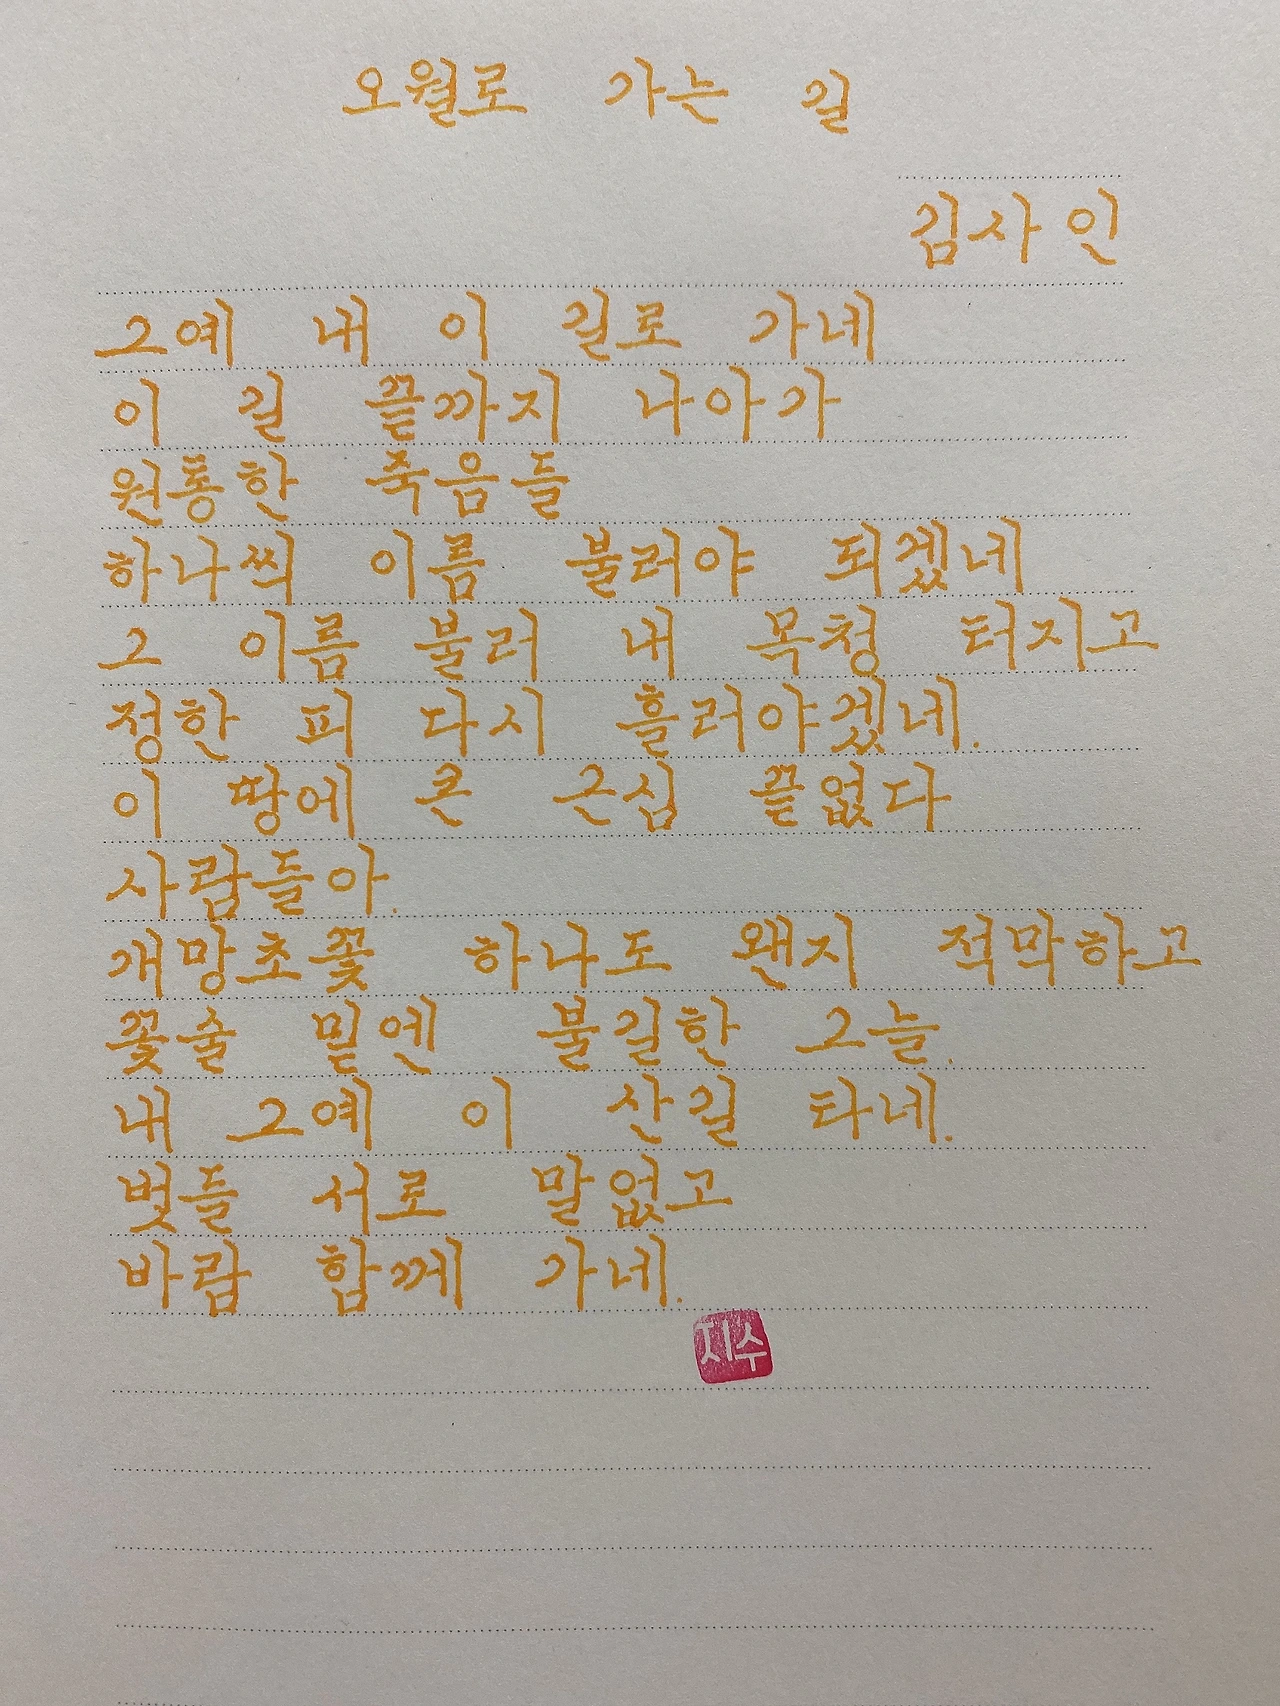 오월로 가는 길
김사인
그예 내 이 길로 가네
이 길 끝까지 나아가
원통한 죽음들
하나씩 이름 불러야 되겠네
그 이름 불러 내 목청 터지고
정한 피 다시 흘러야겠네.
이 땅에 큰 근심 끝없다
사람들아.
개망초꽃 하나도 왠지 적막하고
꽃술 밑엔 불길한 그늘.
내 그예 이 산길 타네.
벗들 서로 말없고
바람 함께 가네.
지수